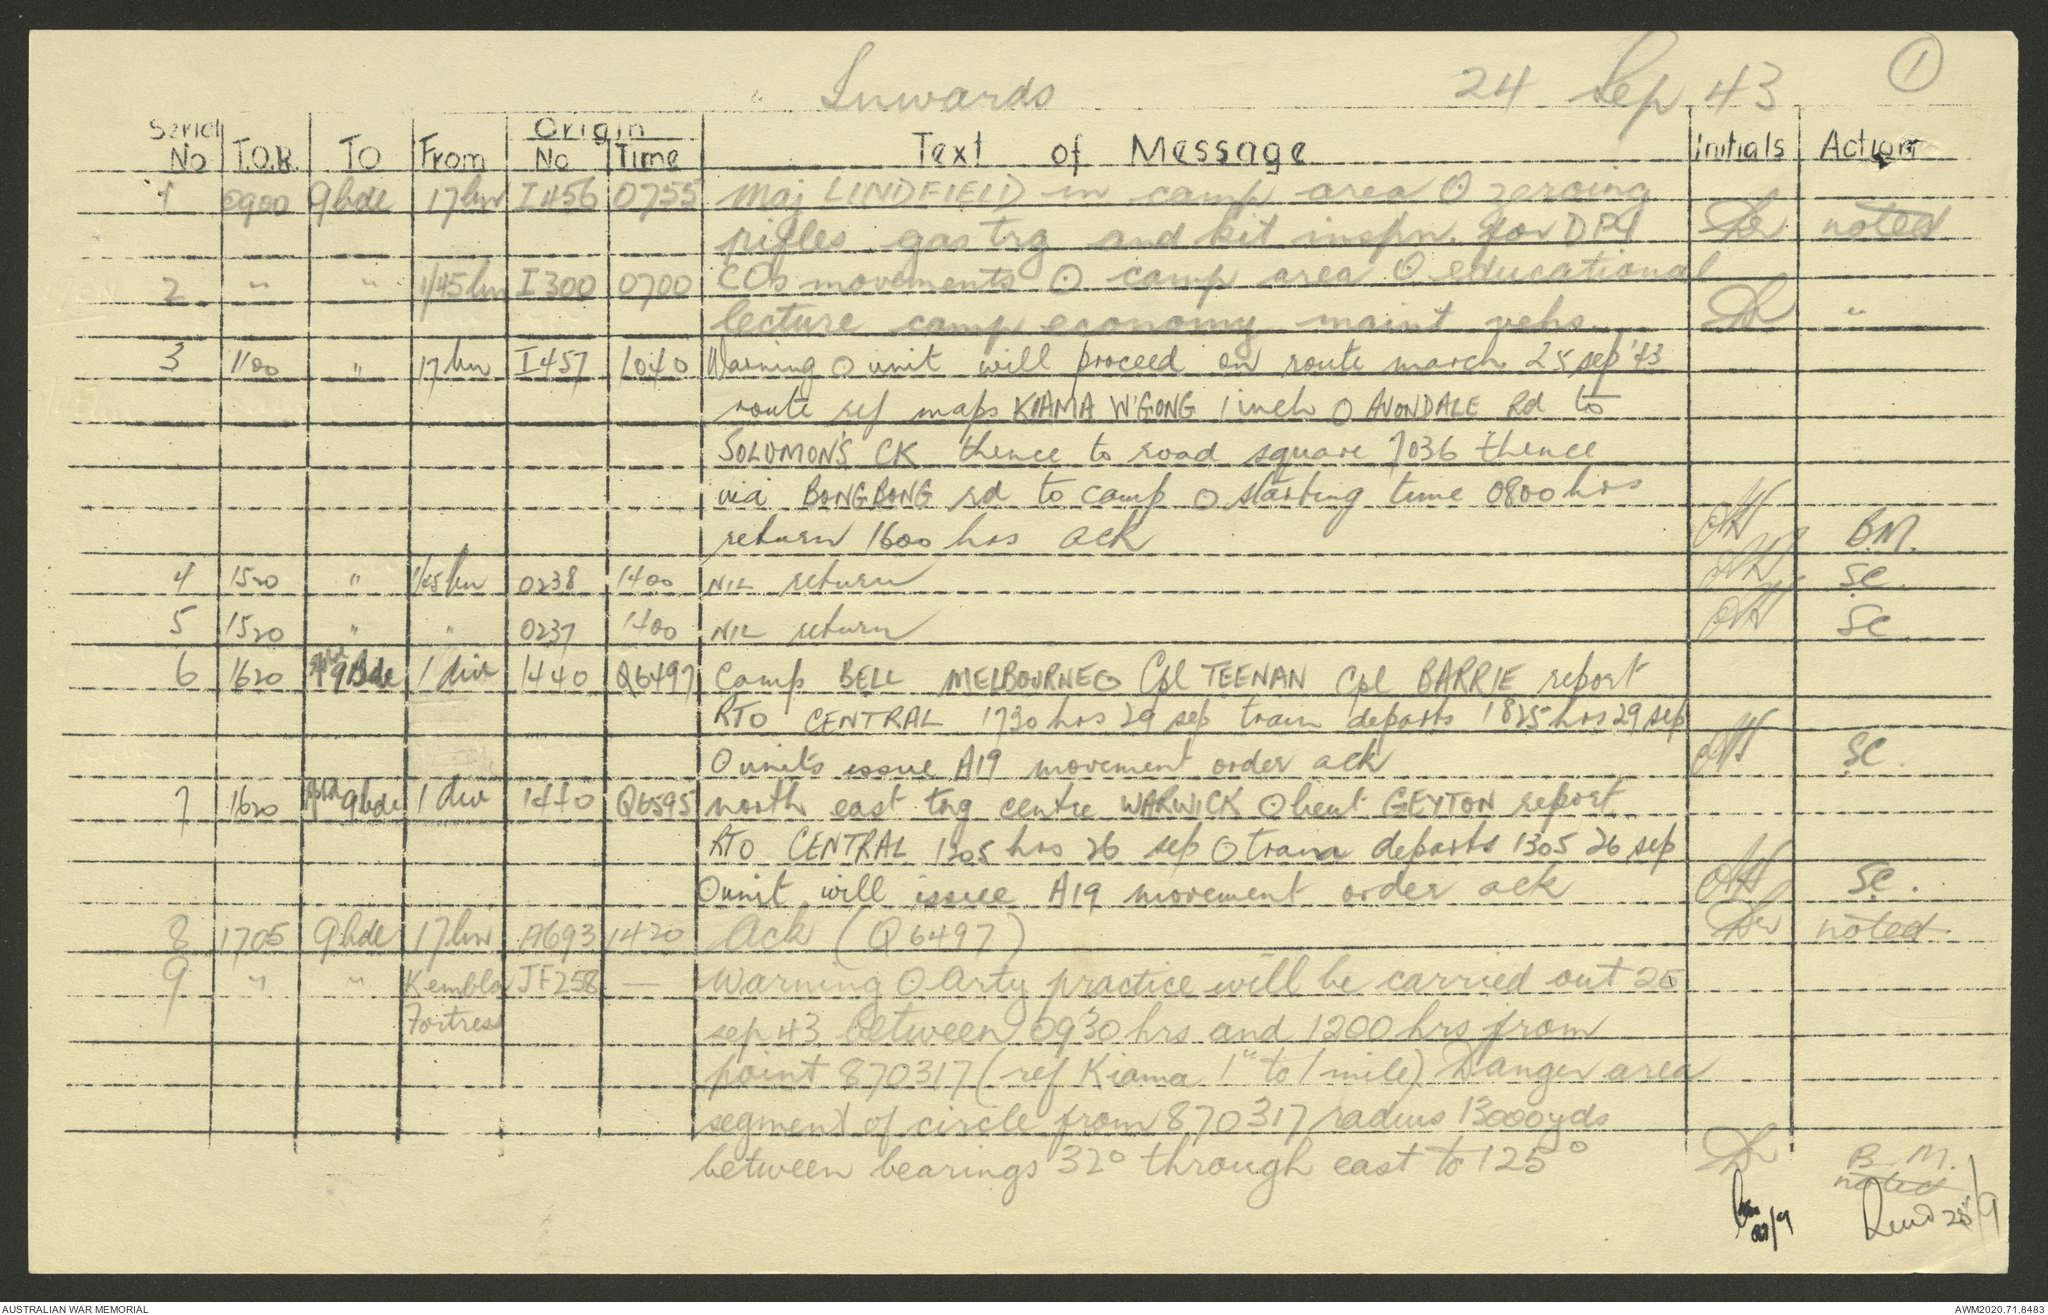 Inwards 24 Sep 43 1
Serial No T.O.R. TO From Origin No Time Text of Message Initials Action
1 0900 9bde 17bn I456 0755 Maj LINDFIELD in camp area O zeroing
rifles gas trg and kit inspn. for DP1 noted
2 " " 1/45bn I300 0700 COs movements O camp area O educational
lecture camp economy maint vehs "
3 1100 " 17bn I457 1040 Warning O unit will proceed on route march 25 sep '43
route ref maps KIAMA W'GONG 1 inch O AVONDALE Rd to
SOLOMON'S CK thence to road square 7036 thence
via BONGBONG rd to camp O starting time 0800 hrs
return 1600 hrs ack B.M.
4 1520 " 1/45bn 0238 1400 NIL return SC.
5 1520 " " 0237 1400 NIL return SC
6 1620 9Bde 1 div 1440 Q6497 Camp BELL MELBOURNE O Cpl TEENAN Cpl BARRIE report
RTO CENTRAL 1730 hrs 29 sep train departs 1825 hrs 29 sep
O units issue A19 movement order ack SC.
7 1620 9bde 1 div 1440 Q6595 north east trg centre WARWICK O lieut GEYTON report
RTO CENTRAL 1205 hrs 26 sep O train departs 1305 26 sep
O unit will issue A19 movement order ack SC.
8 1705 9bde 17bn A693 1420 Ack (Q6497) noted
9 " " Kembla JF258 — Warning O Arty practice will be carried out 25
Fortress sep 43 between 0930 hrs and 1200 hrs from
point 870317 (ref Kiama 1" to 1 mile) Danger area
segment of circle from 870317 radius 13000yds
between bearings 32° through east to 125° B.M.
noted
25/9
AUSTRALIAN WAR MEMORIAL AWM2020.71.8483